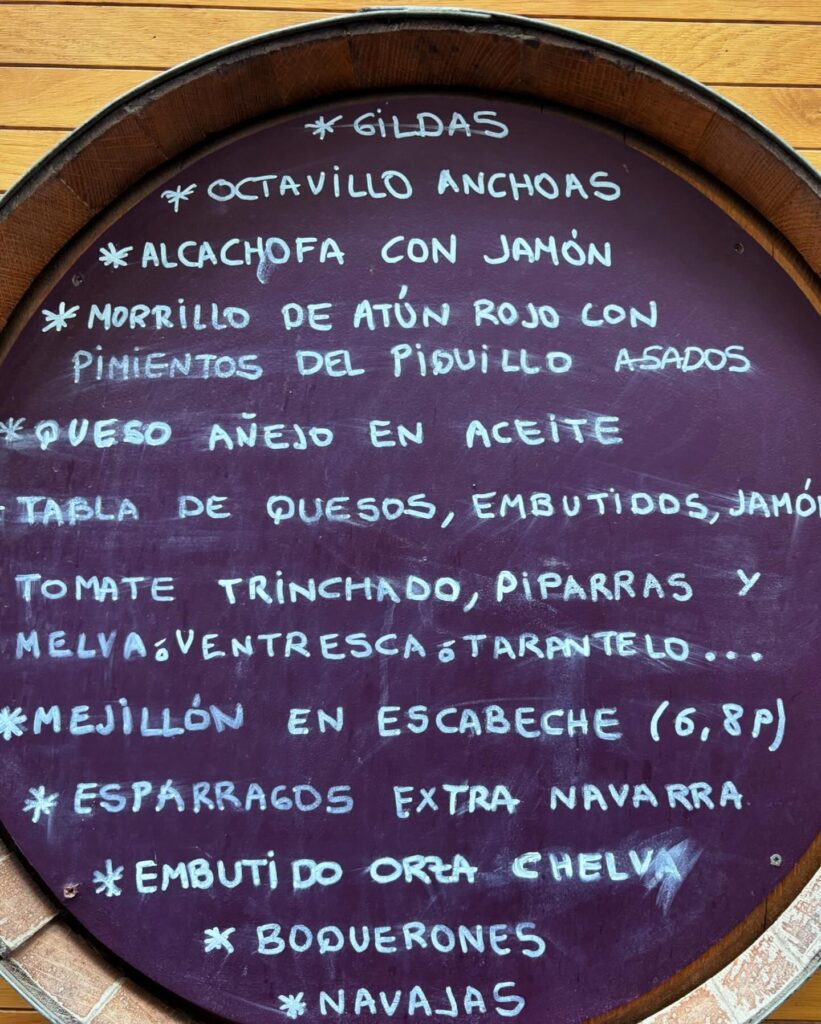 * GILDAS
* OCTAVILLO ANCHOAS
* ALCACHOFA CON JAMÓN
* MORRILLO DE ATÚN ROJO CON
PIMIENTOS DEL PIQUILLO ASADOS
* QUESO AÑEJO EN ACEITE
TABLA DE QUESOS, EMBUTIDOS, JAMÓN
TOMATE TRINCHADO, PIPARRAS Y
MELVA ó VENTRESCA ó TARANTELO...
* MEJILLÓN EN ESCABECHE (6,8P)
* ESPÁRRAGOS EXTRA NAVARRA
* EMBUTIDO ORZA CHELVA
* BOQUERONES
* NAVAJAS